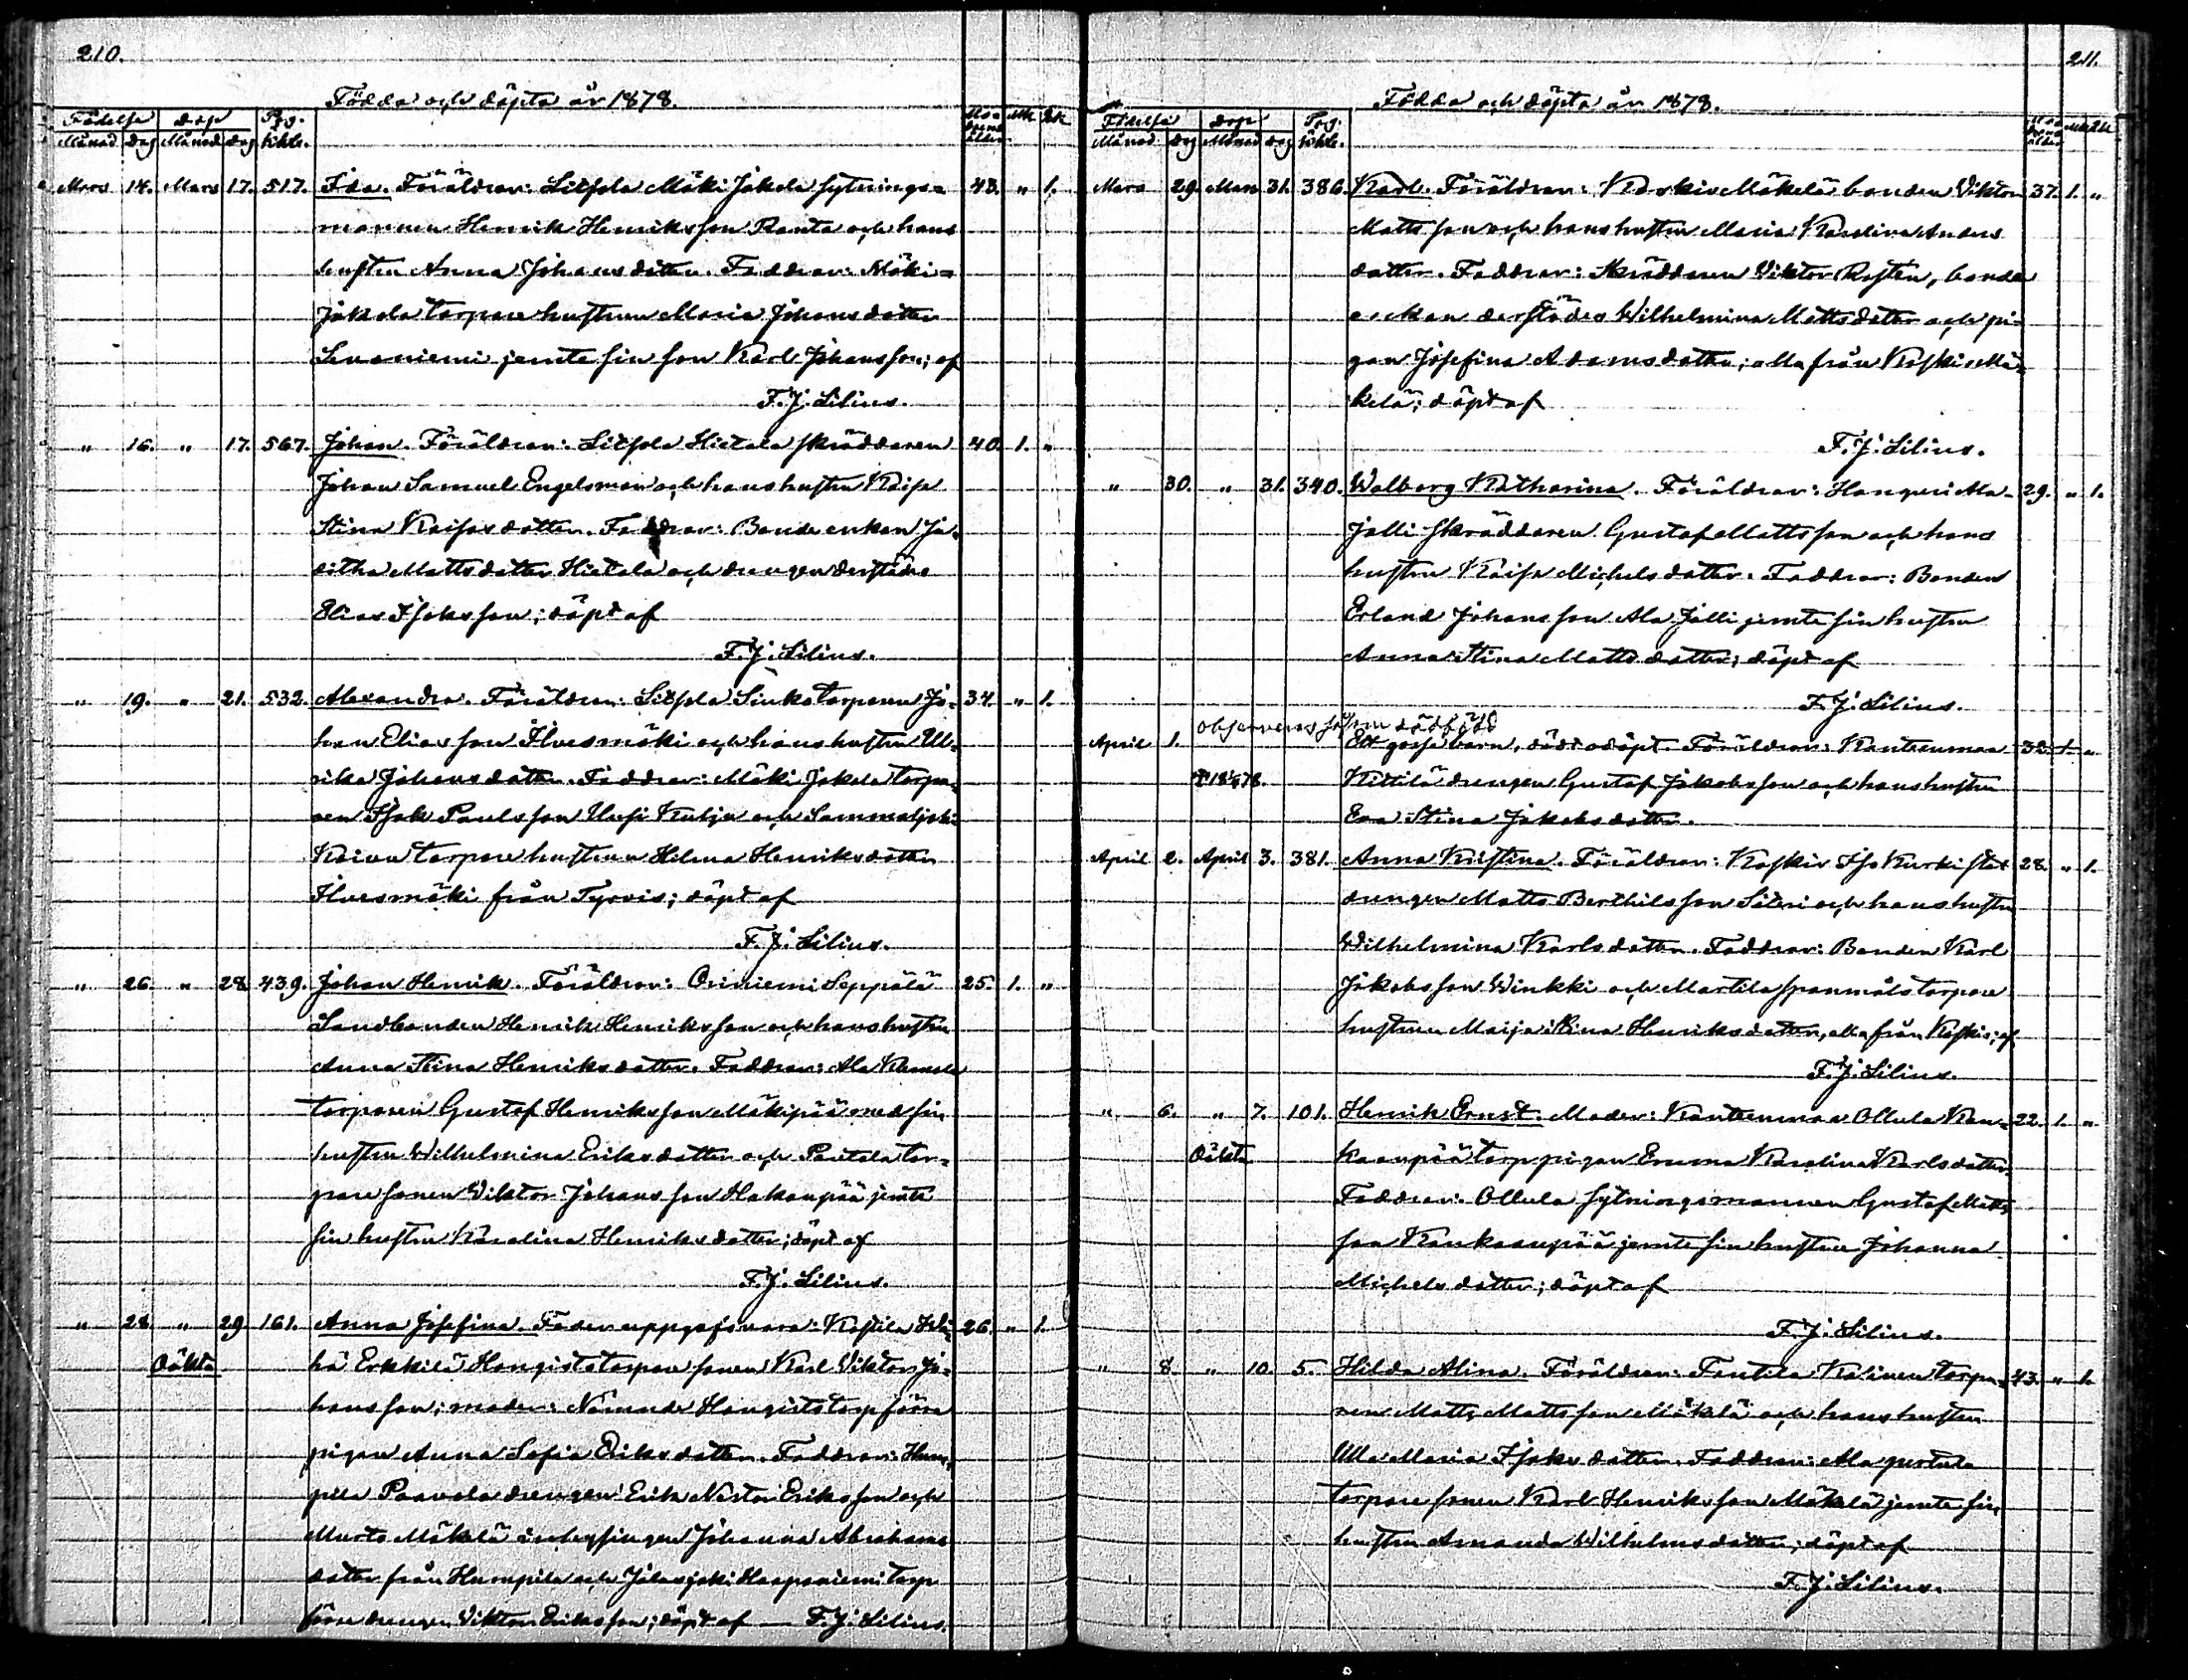 210.
Födda och döpta år 1878.
Födelse dop Pag. Mo- Mk Qk
Månad dag Månad dag kbke. derns ålder
Mars 14. Mars 17. 517. Ida. Föräldrar: Mäki Jakola sytnings= 43. " 1.
mannen Henrik Henriksson Ranta och hans
hustru Anna Johansdotter. Faddrar: Mäki=
Jakola torparehustrun Maria Johansdotter
jemte sin son Karl Johansson; af
F. J. Lilius.
" 16. " 17. 567. Johan. Föräldrar: Hietala skräddaren 40. 1. "
Johan Samuel Engelsman och hans hustru Kaisa
Stina Kaisasdotter. Faddrar: Bonde enkan Ju-
ditha Mattsdotter Hietala och drengen derstädes
Elias Isaksson; döpt af
F. J. Lilius.
" 19. " 21. 532. Alexandra. Föräldrar: torparen Jo- 34. " 1.
han Eliasson Ilvesmäki och hans hustru Ul-
rika Johansdotter. Faddrar: Mäki Jakola torpa-
ren Isak Paulsson Uusi Kulju och Sammaljoki
torparehustrun Helena Henriksdotter
Ilvesmäki från Tyrvis; döpt af
F. J. Lilius.
" 26. " 28. 439. Johan Henrik. Föräldrar: Oriniemi Seppälä 25. 1. "
Landbonden Henrik Henriksson och hans hustru
Anna Stina Henriksdotter. Faddrar: Ala
torparen Gustaf Henriksson Mäkipää med sin
hustru Wilhelmina Eriksdotter och tor-
paresonen Viktor Johansson Hakanpää jemte
sin hustru Karolina Henriksdotter; döpt af
F. J. Lilius.
" 28. " 29. 161. Anna Josefina. Fader uppgifves vara: 26. " 1.
Oäkta Erkkilä Hongisto torparesonen Karl Viktor Jo-
hansson; moder: Nämnde Hongisto torp förra
pigan Anna Sofia Eriksdotter. Faddrar: Hum-
pila Paavola drengen Erik Nestor Eriksson och
Mäkelä inhysingen Johanna Abrahams
dotter från Humpila och Jalasjoki Haapaniemi torp
förre drengen Viktor Eriksson; döpt af — F. J. Lilius.
211.
Födda och döpta år 1878.
Födelse dop Pag. Mo- Mk Qk
Månad dag Månad dag kbke. derns ålder
Mars 29. Mars 31. 386. Karl. Föräldrar: Koskis Mäkelä bonden Viktor 37. 1. "
Mattsson och hans hustru Maria Karolina Anders
dotter. Faddrar: Skräddaren Viktor Rosten, bonde
enkan derstädes Wilhelmina Mattsdotter och pi-
gan Josefina Adamsdotter; alla från Koskis Mä-
kelä; döpt af
F. J. Lilius.
" 30. " 31. 340. Walborg Katharina. Föräldrar: Ala- 29. " 1.
Jalli skräddaren Gustaf Mattsson och hans
hustru Kaisa Michelsdotter. Faddrar: Bonden
Erland Johansson Ala Jalli jemte sin hustru
Anna Stina Mattsdotter; döpt af
F. J. Lilius.
observeras såsom dödfödd
April 1. Ett gossebarn, dödt odöpt. Föräldrar: Kanteenmaa 32. 1. "
Kittilä drengen Gustaf Jakobsson och hans hustru
Eva Stina Jakobsdotter.
April 2. April 3. 381. Anna Kristina. Föräldrar: Koskis Iso Kurki 28. " 1.
drengen Matts Berthilsson och hans hustru
Wilhelmina Karlsdotter. Faddrar: Bonden Karl
Jakobsson Winkki och Martila spanmålstorpare
hustrun Maija Stina Henriksdotter, alla från Koskis; af
F. J. Lilius.
" 6. " 7. 101. Henrik Ernst. Moder: Kanteenmaa Ollula Kan- 22. 1. "
Oäkta kaanpää torp pigan Emma Karolina Karlsdotter.
Faddrar: Ollula sytningsmannen Gustaf Matts-
son Kankaanpää jemte sin hustru Johanna
Michelsdotter; döpt af
F. J. Lilius.
" 8. " 10. 5. Hilda Alina. Föräldrar: torpa- 43. " 1.
ren Matts Mattsson Mäkelä och hans hustru
Ulla Maria Isaksdotter. Faddrar: Ala
torparesonen Karl Henriksson Mäkelä jemte sin
hustru Amanda Wilhelmsdotter; döpt af
F. J. Lilius.